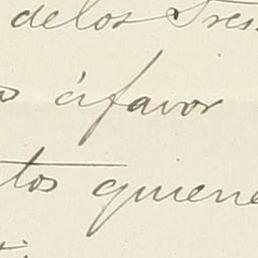 delos Tres
á favor
tos quiene